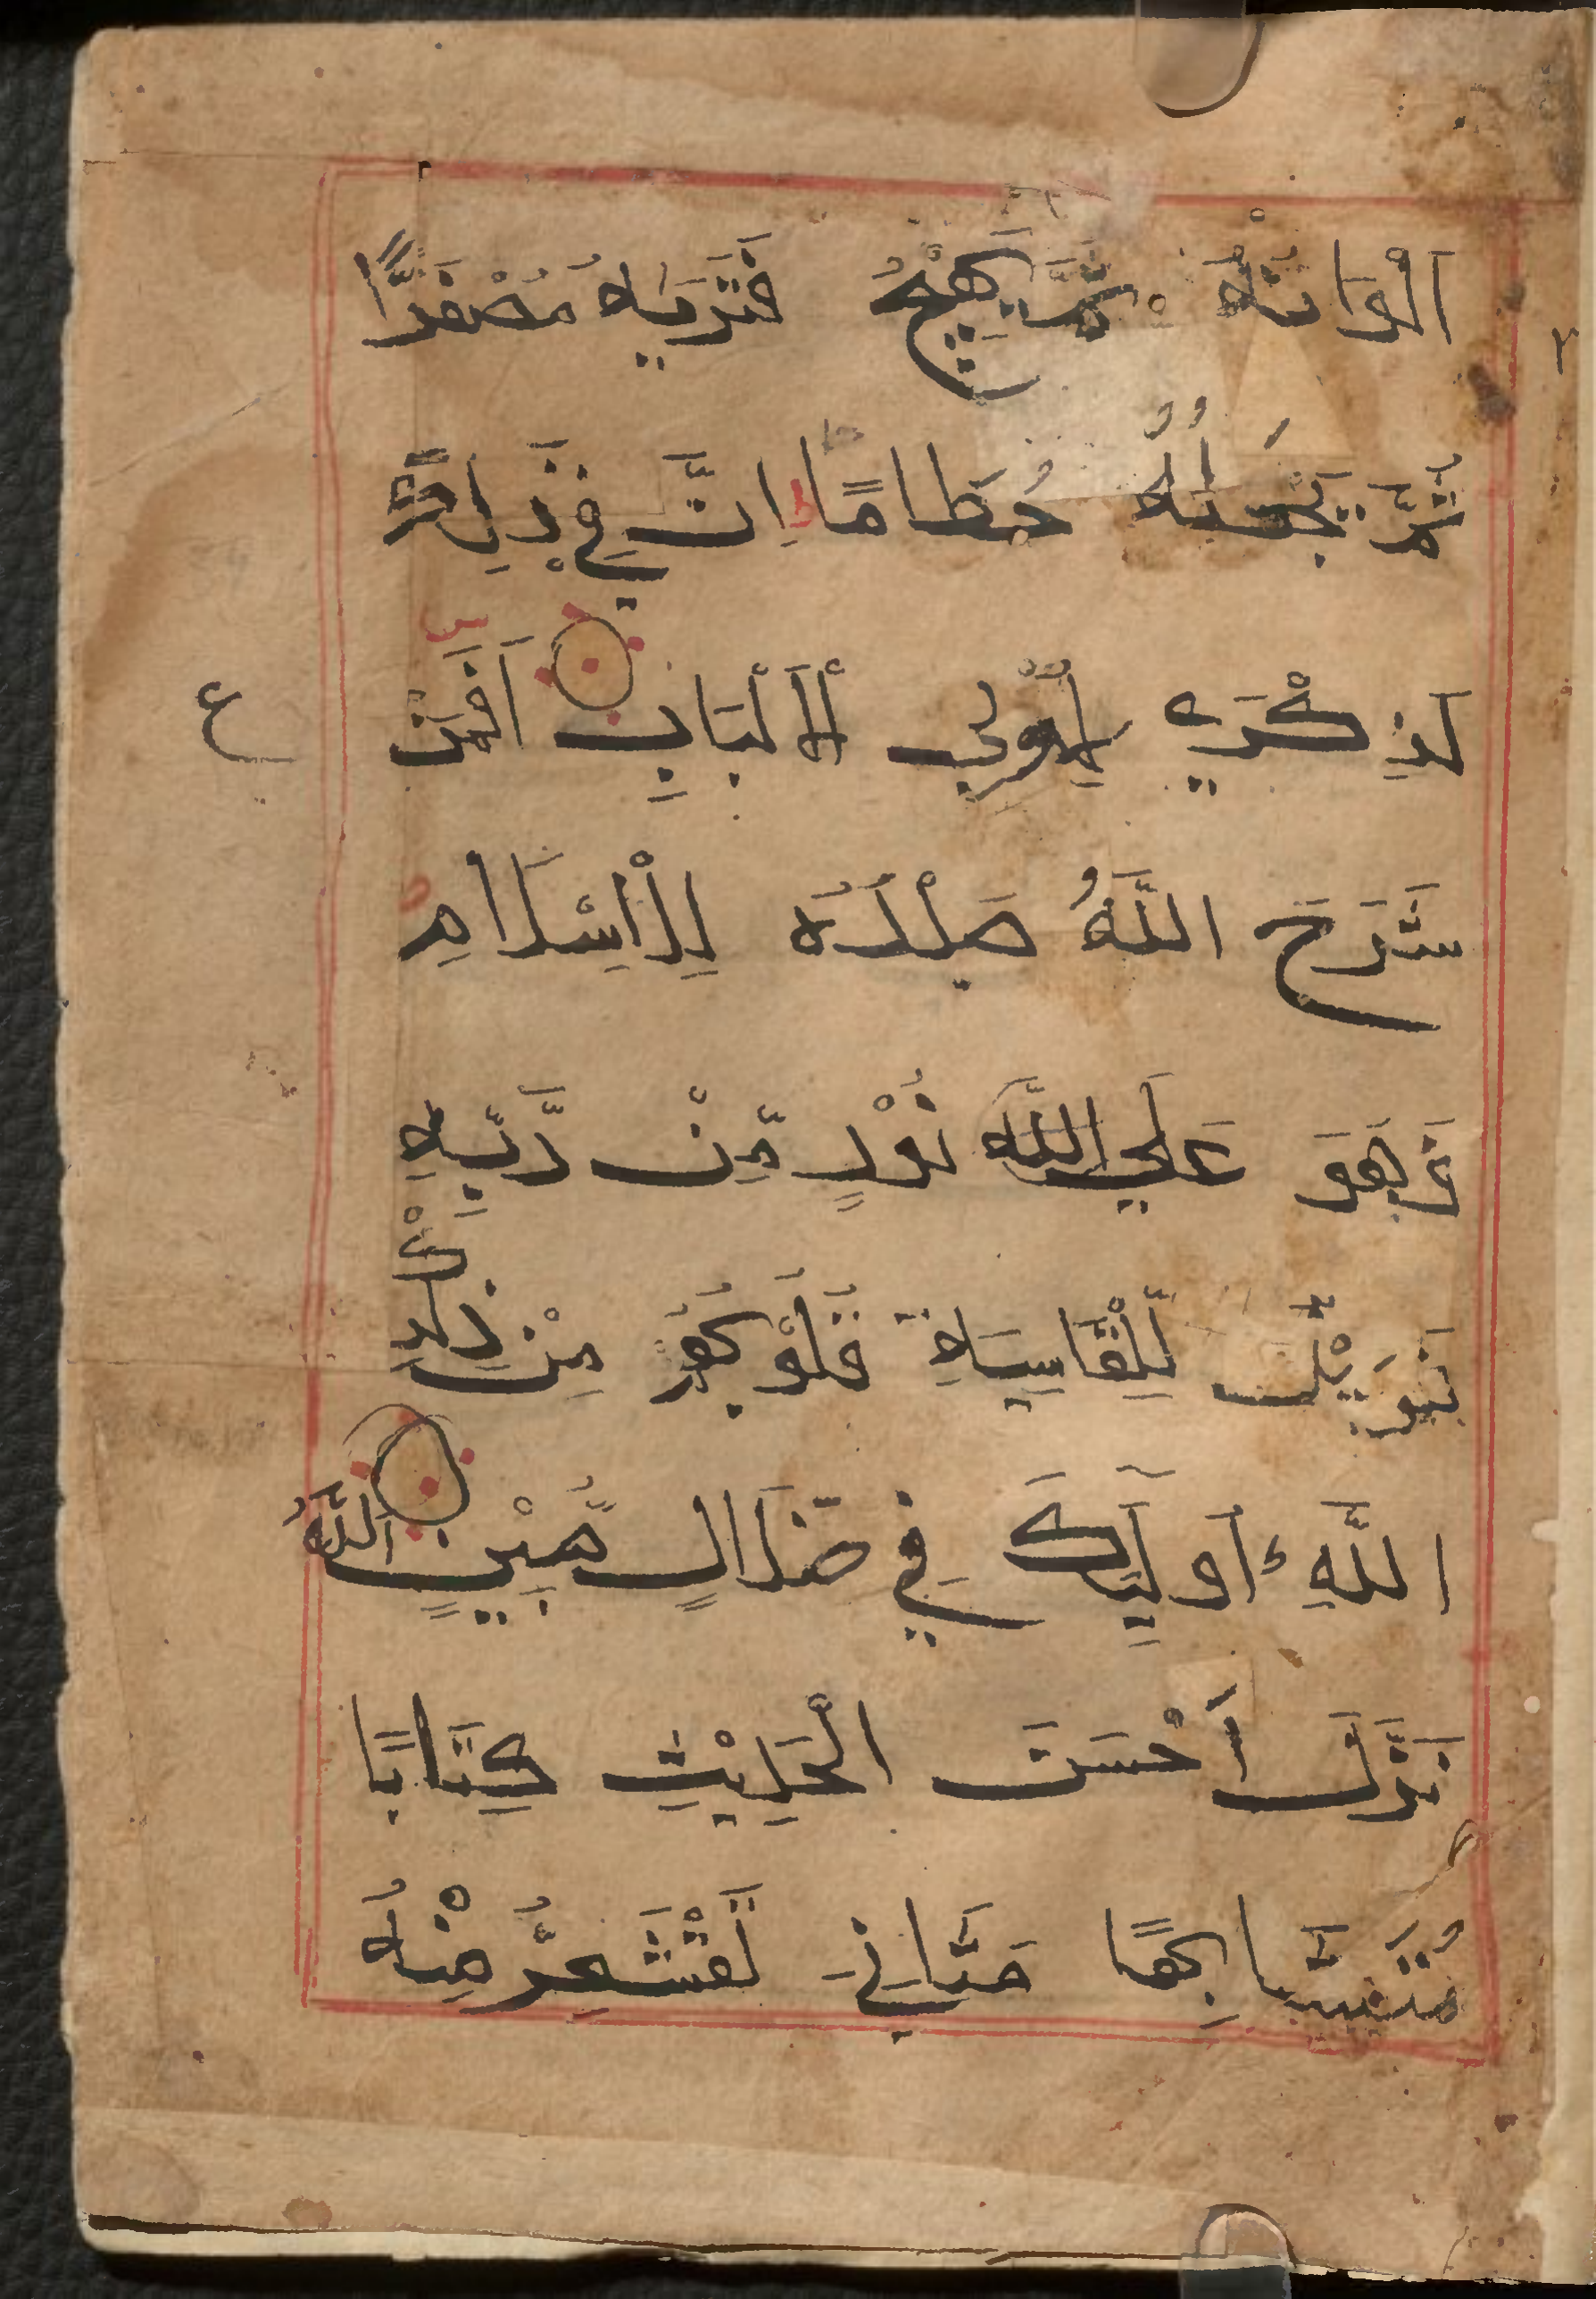 اَلْوَانُهُ ثُمَّ يَهِيْجُ فَتَرٰىهُ مُصْفَرًّا
ثُمَّ يَجْعَلُهُ حُطَامًا اِنَّ فِيْ ذٰلِكَ
لَذِكْرٰي لِاُوْلِي الْاَلْبَابِ اَفَمَنْ
ع
شَرَحَ اللَّهُ صَدْرَهُ لِلْاِسْلَامِ
فَهُوَ عَلٰي نُوْرٍ مِّنْ رَّبِّهٖ
فَوَيْلٌ لِّلْقَاسِيَةِ قُلُوْبُهُمْ مِنْ ذِكْرِ
اللَّهِ اُولٰٓئِكَ فِي ضَلَالٍ مُّبِيْنٍ اللَّهُ
نَزَّلَ اَحْسَنَ الْحَدِيْثِ كِتَابًا
مُتَشَابِهًا مَثَانِيَ تَقْشَعِرُّ مِنْهُ